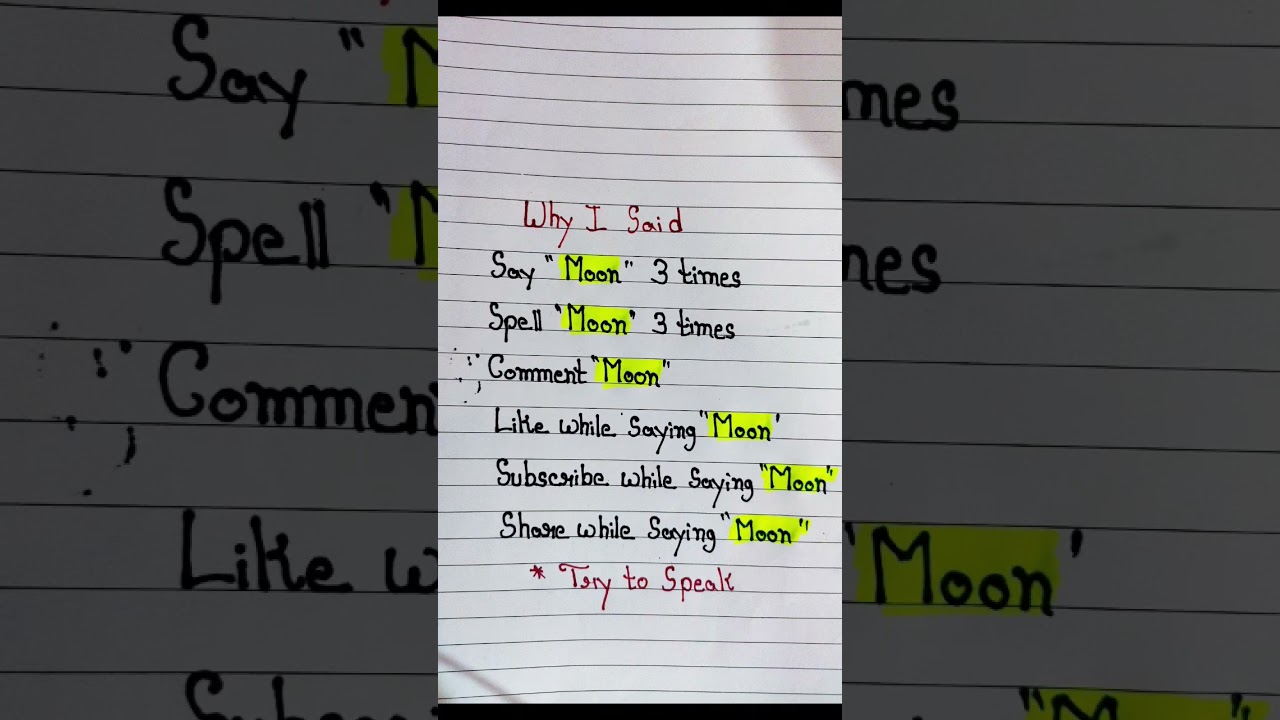 Why I Said
Say "Moon" 3 times
Spell "Moon" 3 times
Comment "Moon"
Like while Saying "Moon'
Subscribe while Saying "Moon"
Share while Saying "Moon"
* Try to Speak